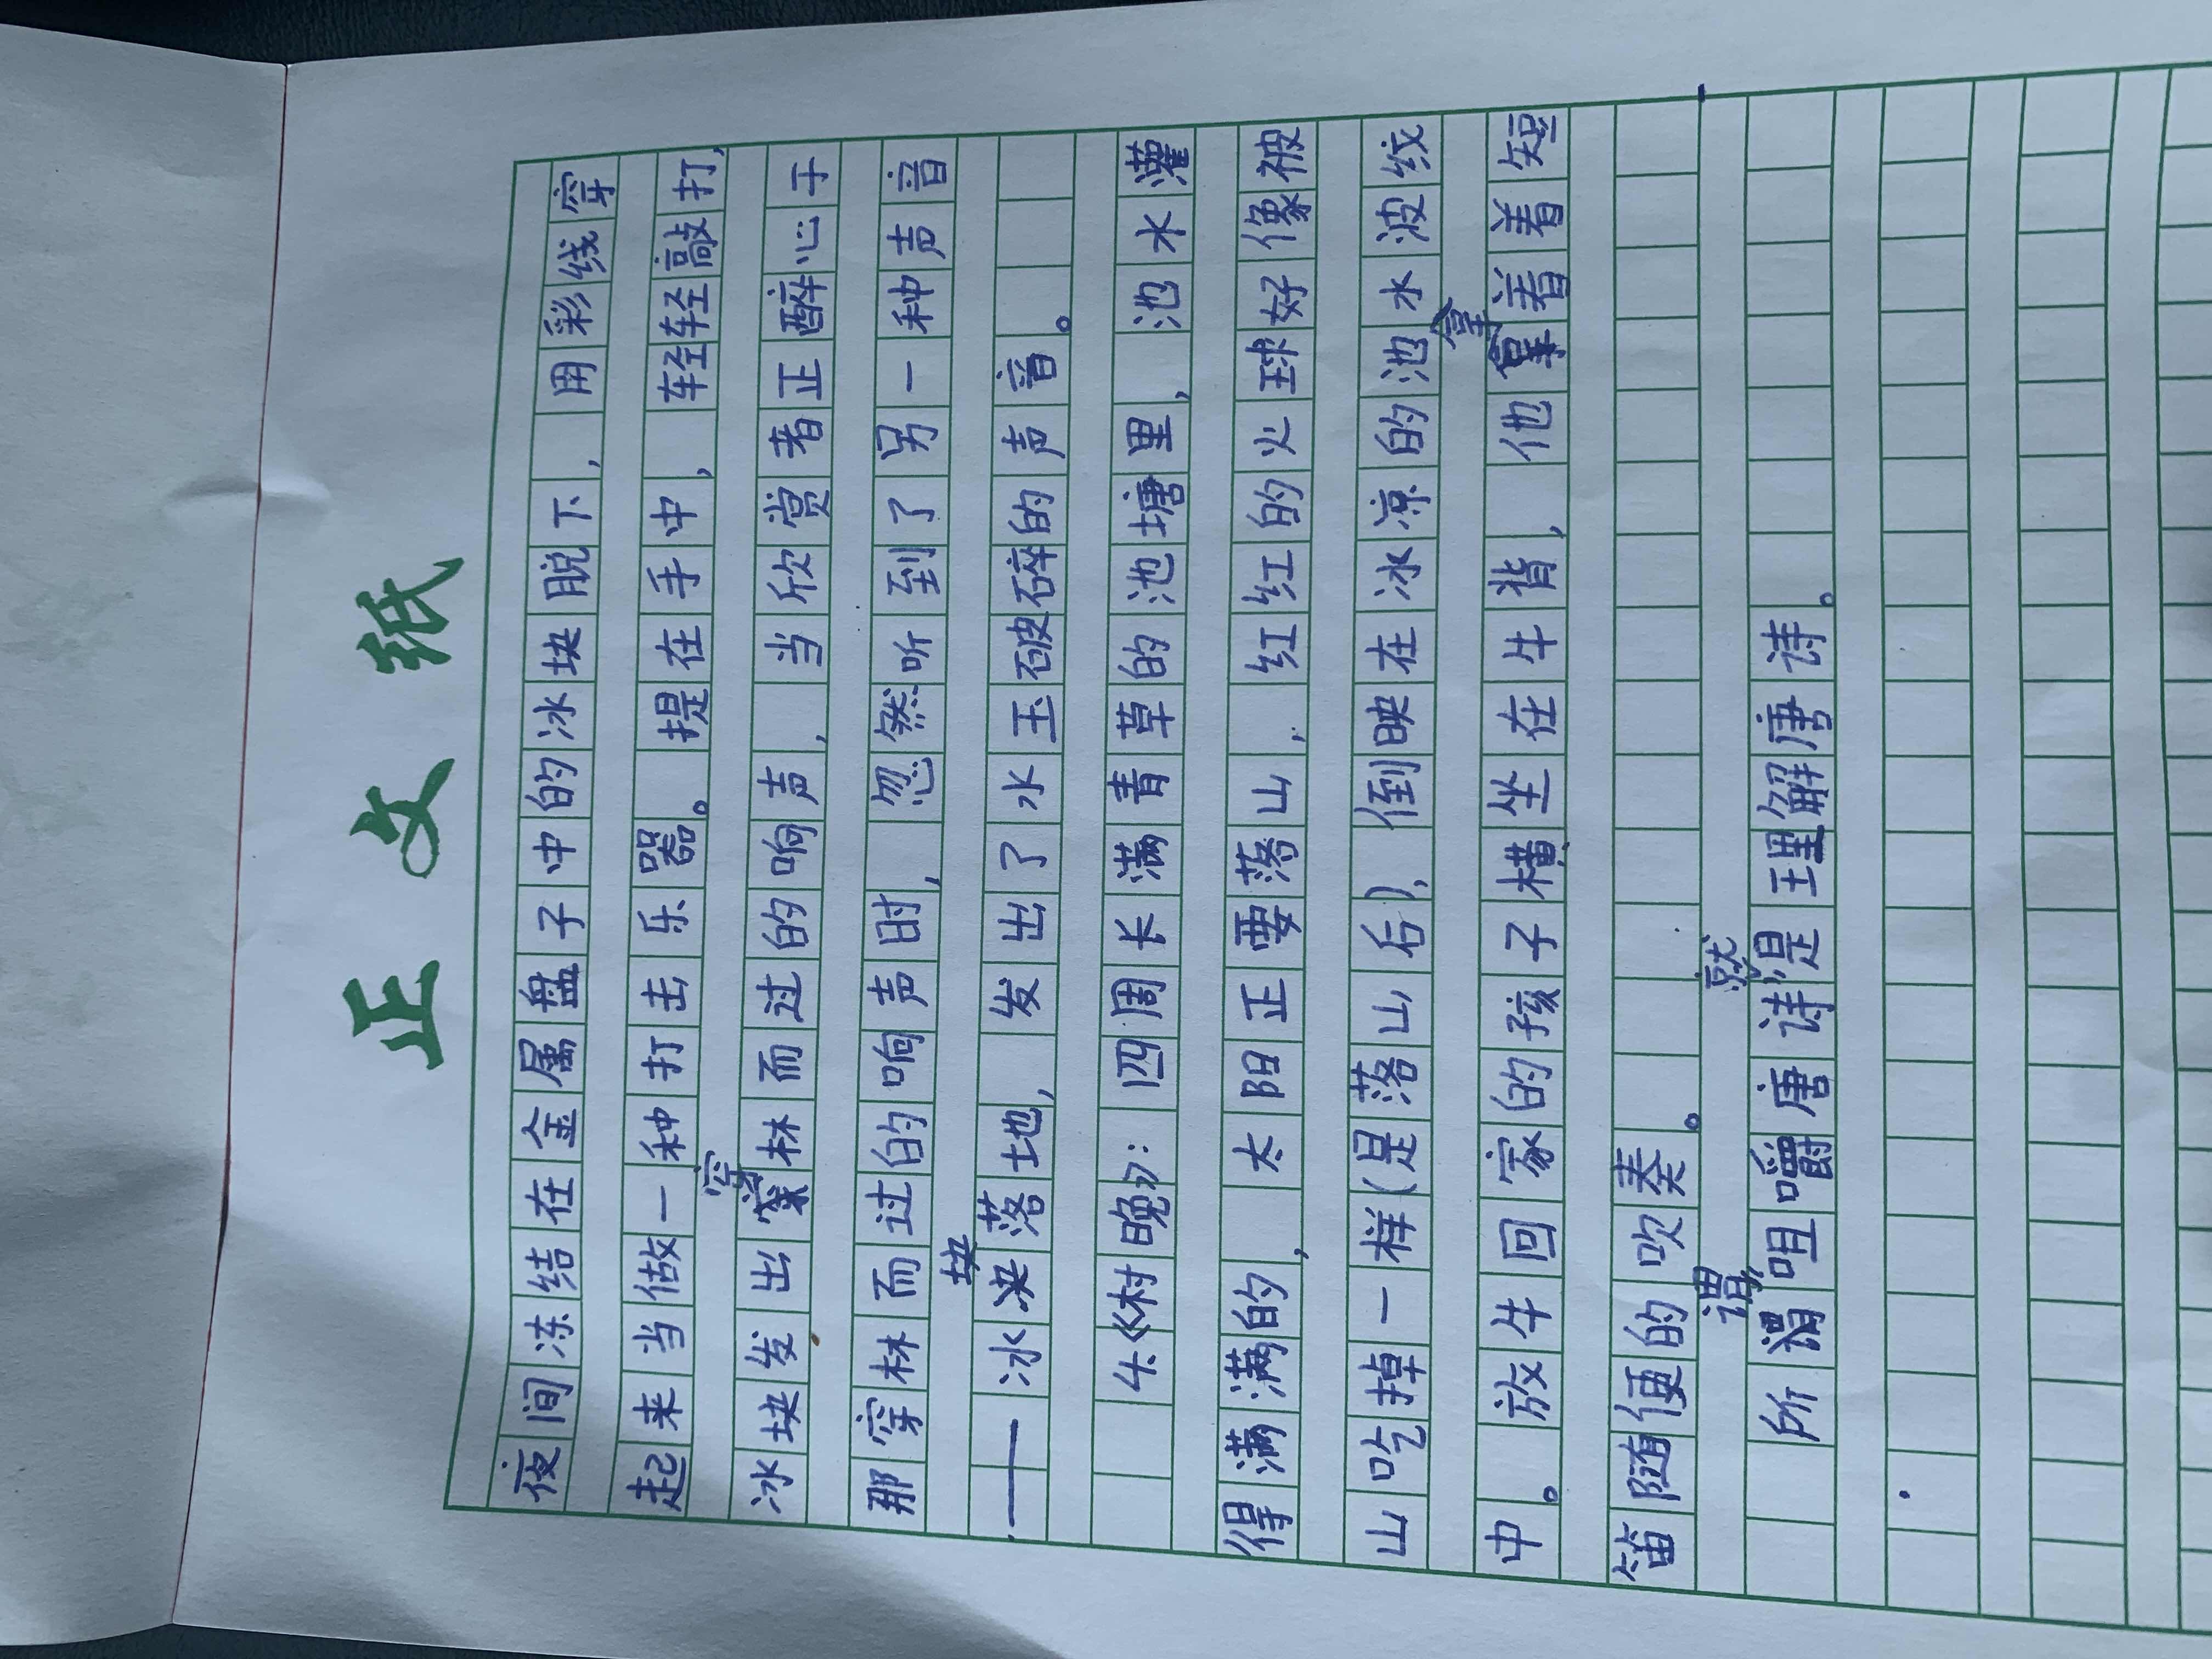 正文纸
夜间冻结在金属盘子中的冰块脱下,用彩线穿
起来当做一种打击乐器。提在手中,轻轻敲打,
冰块发出穿林而过的响声,当欣赏者正醉心于
那穿林而过的响声时,忽然听到了另一种声音
——冰块落地,发出了水玉破碎的声音。
4.《村晚》:四周长满青草的池塘里,池水灌
得满满的,太阳正要落山,红红的火球好像被
山吃掉一样(是落山后),倒映在冰凉的池水波纹
中。放牛回家的孩子横坐在牛背,他拿着着短
笛随便的吹奏。
所谓咀嚼唐诗就是理解唐诗。